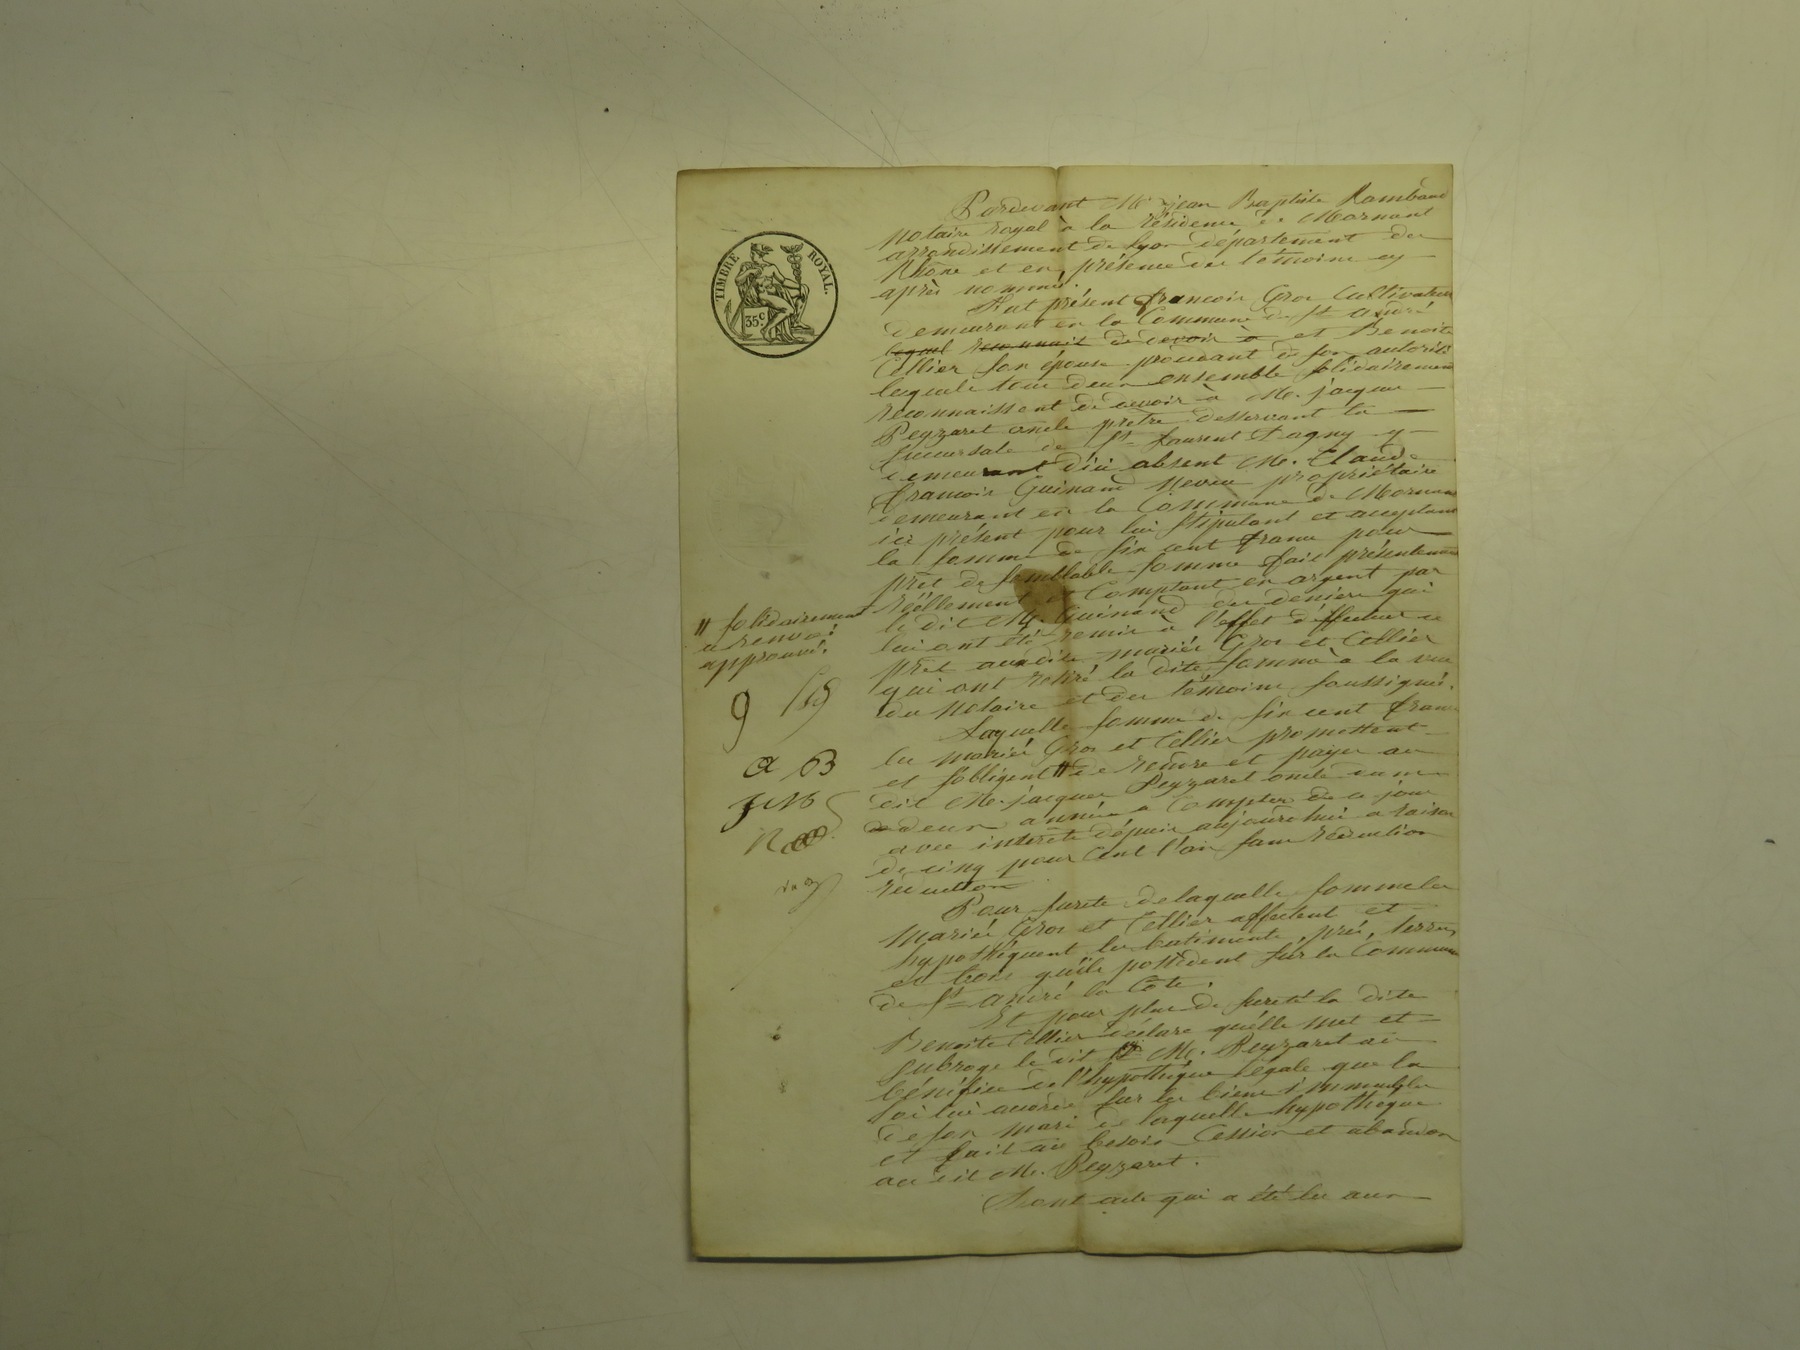 TIMBRE ROYAL.
35c.
Pardevant Me jean Baptiste Rambaud
Notaire royal à la résidence de Mornant
arrondissement de Lyon département du
Rhône et en présence des témoins cy
après nommés.
Fut présent françois Gros Cultivateur
demeurant en la Commune de St andré
lequel reconnait de devoir à et Benoite
Cellier son épouse procédant de son autorité
lesquels tous deux ensemble solidairement
reconnaissent de devoir à M. jacques
Peyzaret oncle prêtre desservant la
succursale de St Laurent Dagny y
demeurant d'ici absent M. Claude
françois Guinand Neveu propriétaire
demeurant en la Commune de Mornant
ici présent pour lui stipulant et acceptant
la somme de six cent francs pour
prêt de semblable somme fait présentement
réellement et Comptant en argent par
le dit M. Guinand des deniers qui
lui ont été remis à l'effet d'effectuer ce
prêt auxdits mariés Gros et Cellier
qui ont retiré la dite somme à la vue
du Notaire et des témoins soussignés.
Laquelle somme de six cent francs
les mariés Gros et Cellier promettent
et s'obligent // de rendre et payer au
dit M. jacques Peyzaret oncle dans
deux années à Compter de ce jour
avec intérêts dépuis aujourdhui a raison
de cinq pour cent l'an sans rétention
Pour sureté de laquelle somme les
mariés Gros et Cellier affectent et
hypothéquent les batiments, prés, terres
et bois qu'ils possèdent sur la Commune
de St andré la Côte.
Et pour plus de sureté la dite
Benoite Cellier déclare qu'elle met et
subroge le dit M. Peyzaret au
bénéfice de l'hypothéque légale que la
loi lui accorde sur les biens immeubles
de son mari de laquelle hypothéque
et fait au besoin Cession et abandon
au dit M. Peyzaret.
Dont acte qui a été lu aux
// solidairement
renvoi
approuvé.